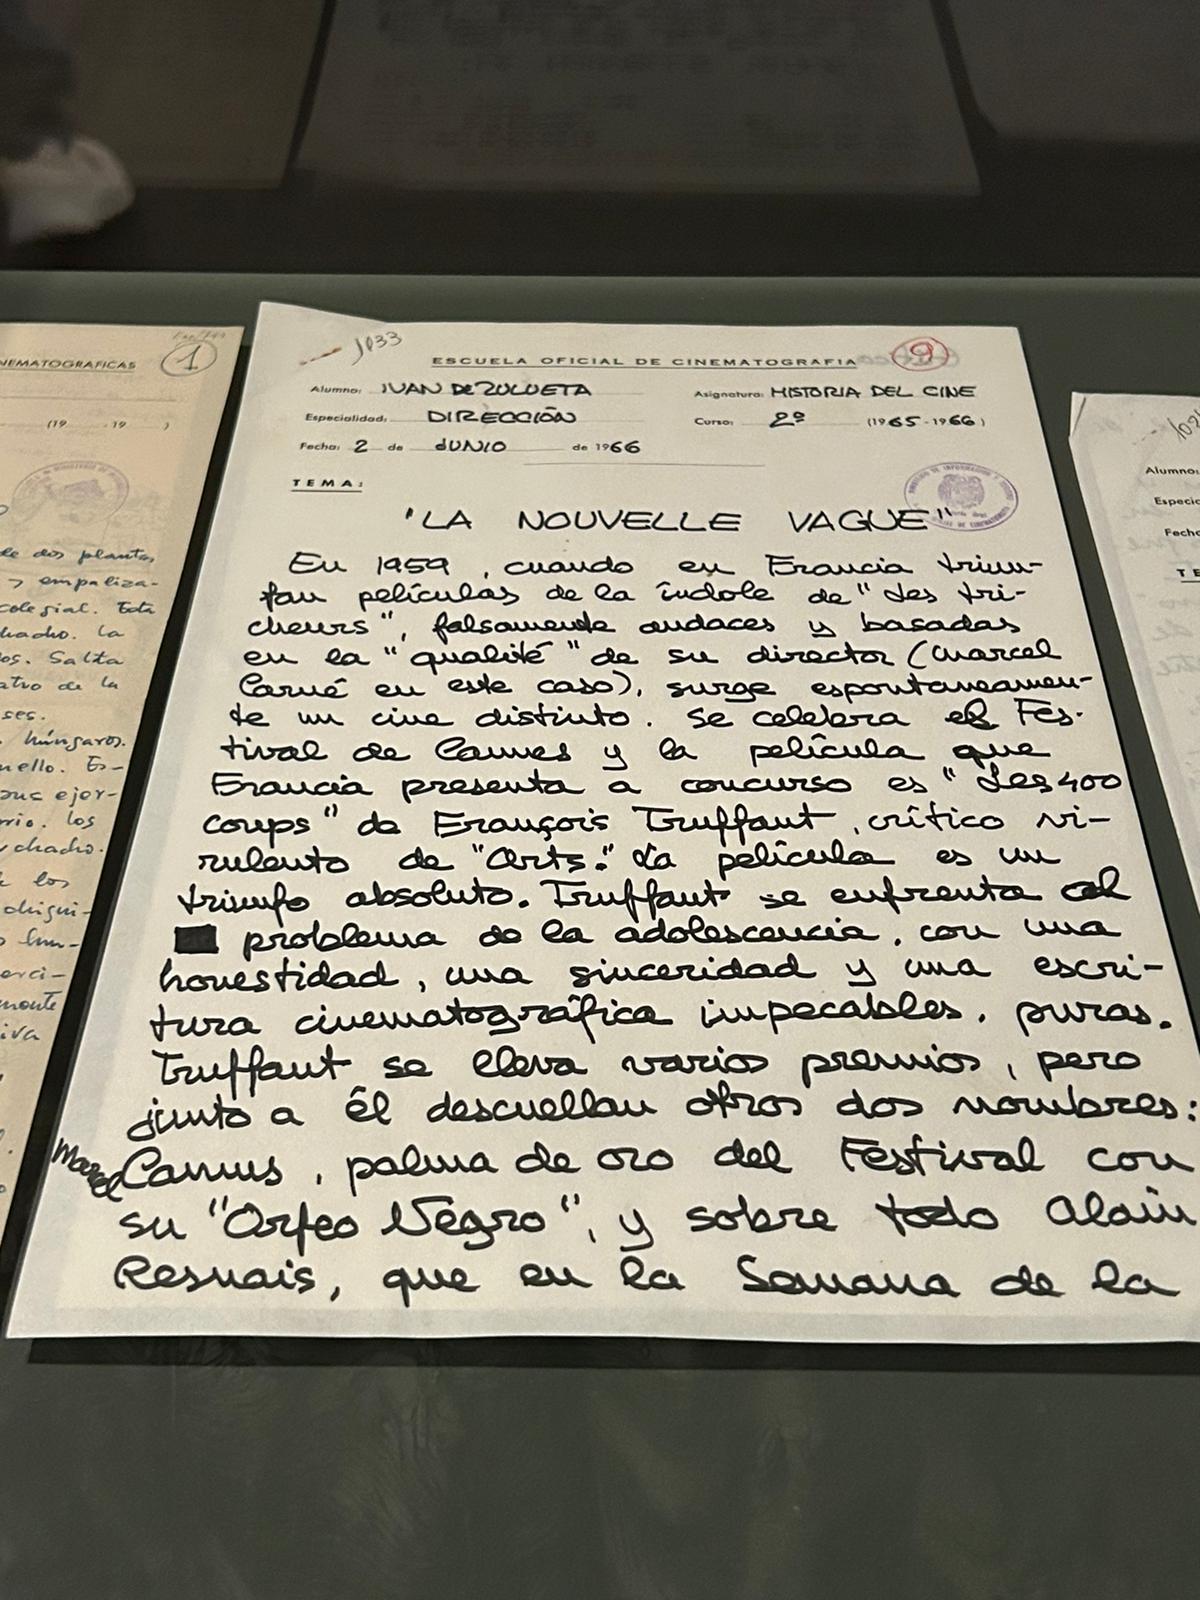 CINEMATOGRAFICAS
1
(19 -19 )
de dos plantas
y empaliza-
colegial. Esta
La
Salta
de la
ses.
húngaros.
Es-
ejer-
los
los
1033
ESCUELA OFICIAL DE CINEMATOGRAFIA
9
Alumno: IVAN DE ZULUETA
Asignatura: HISTORIA DEL CINE
Especialidad: DIRECCIÓN
Curso: 2º (1965-1966)
Fecha: 2 de JUNIO de 1966
TEMA:
"LA NOUVELLE VAGUE"
En 1959, cuando en Francia triun-
fan películas de la índole de "Les tri-
cheurs", falsamente audaces y basadas
en la "qualité" de su director (Marcel
Carné en este caso), surge espontáneamen-
te un cine distinto. Se celebra el Fes-
tival de Cannes y la película que
Francia presenta a concurso es "Les 400
coups" de François Truffaut, crítico vi-
rulento de "Arts." La película es un
triunfo absoluto. Truffaut se enfrenta al
problema de la adolescencia, con una
honestidad, una sinceridad y una escri-
tura cinematográfica impecables, puras.
Truffaut se lleva varios premios, pero
junto a él descuellan otros dos nombres:
Marcel Camus, palma de oro del Festival con
su "Orfeo Negro", y sobre todo Alain
Resnais, que en la Semana de la
Alumno:
Especia
Fecha
TE